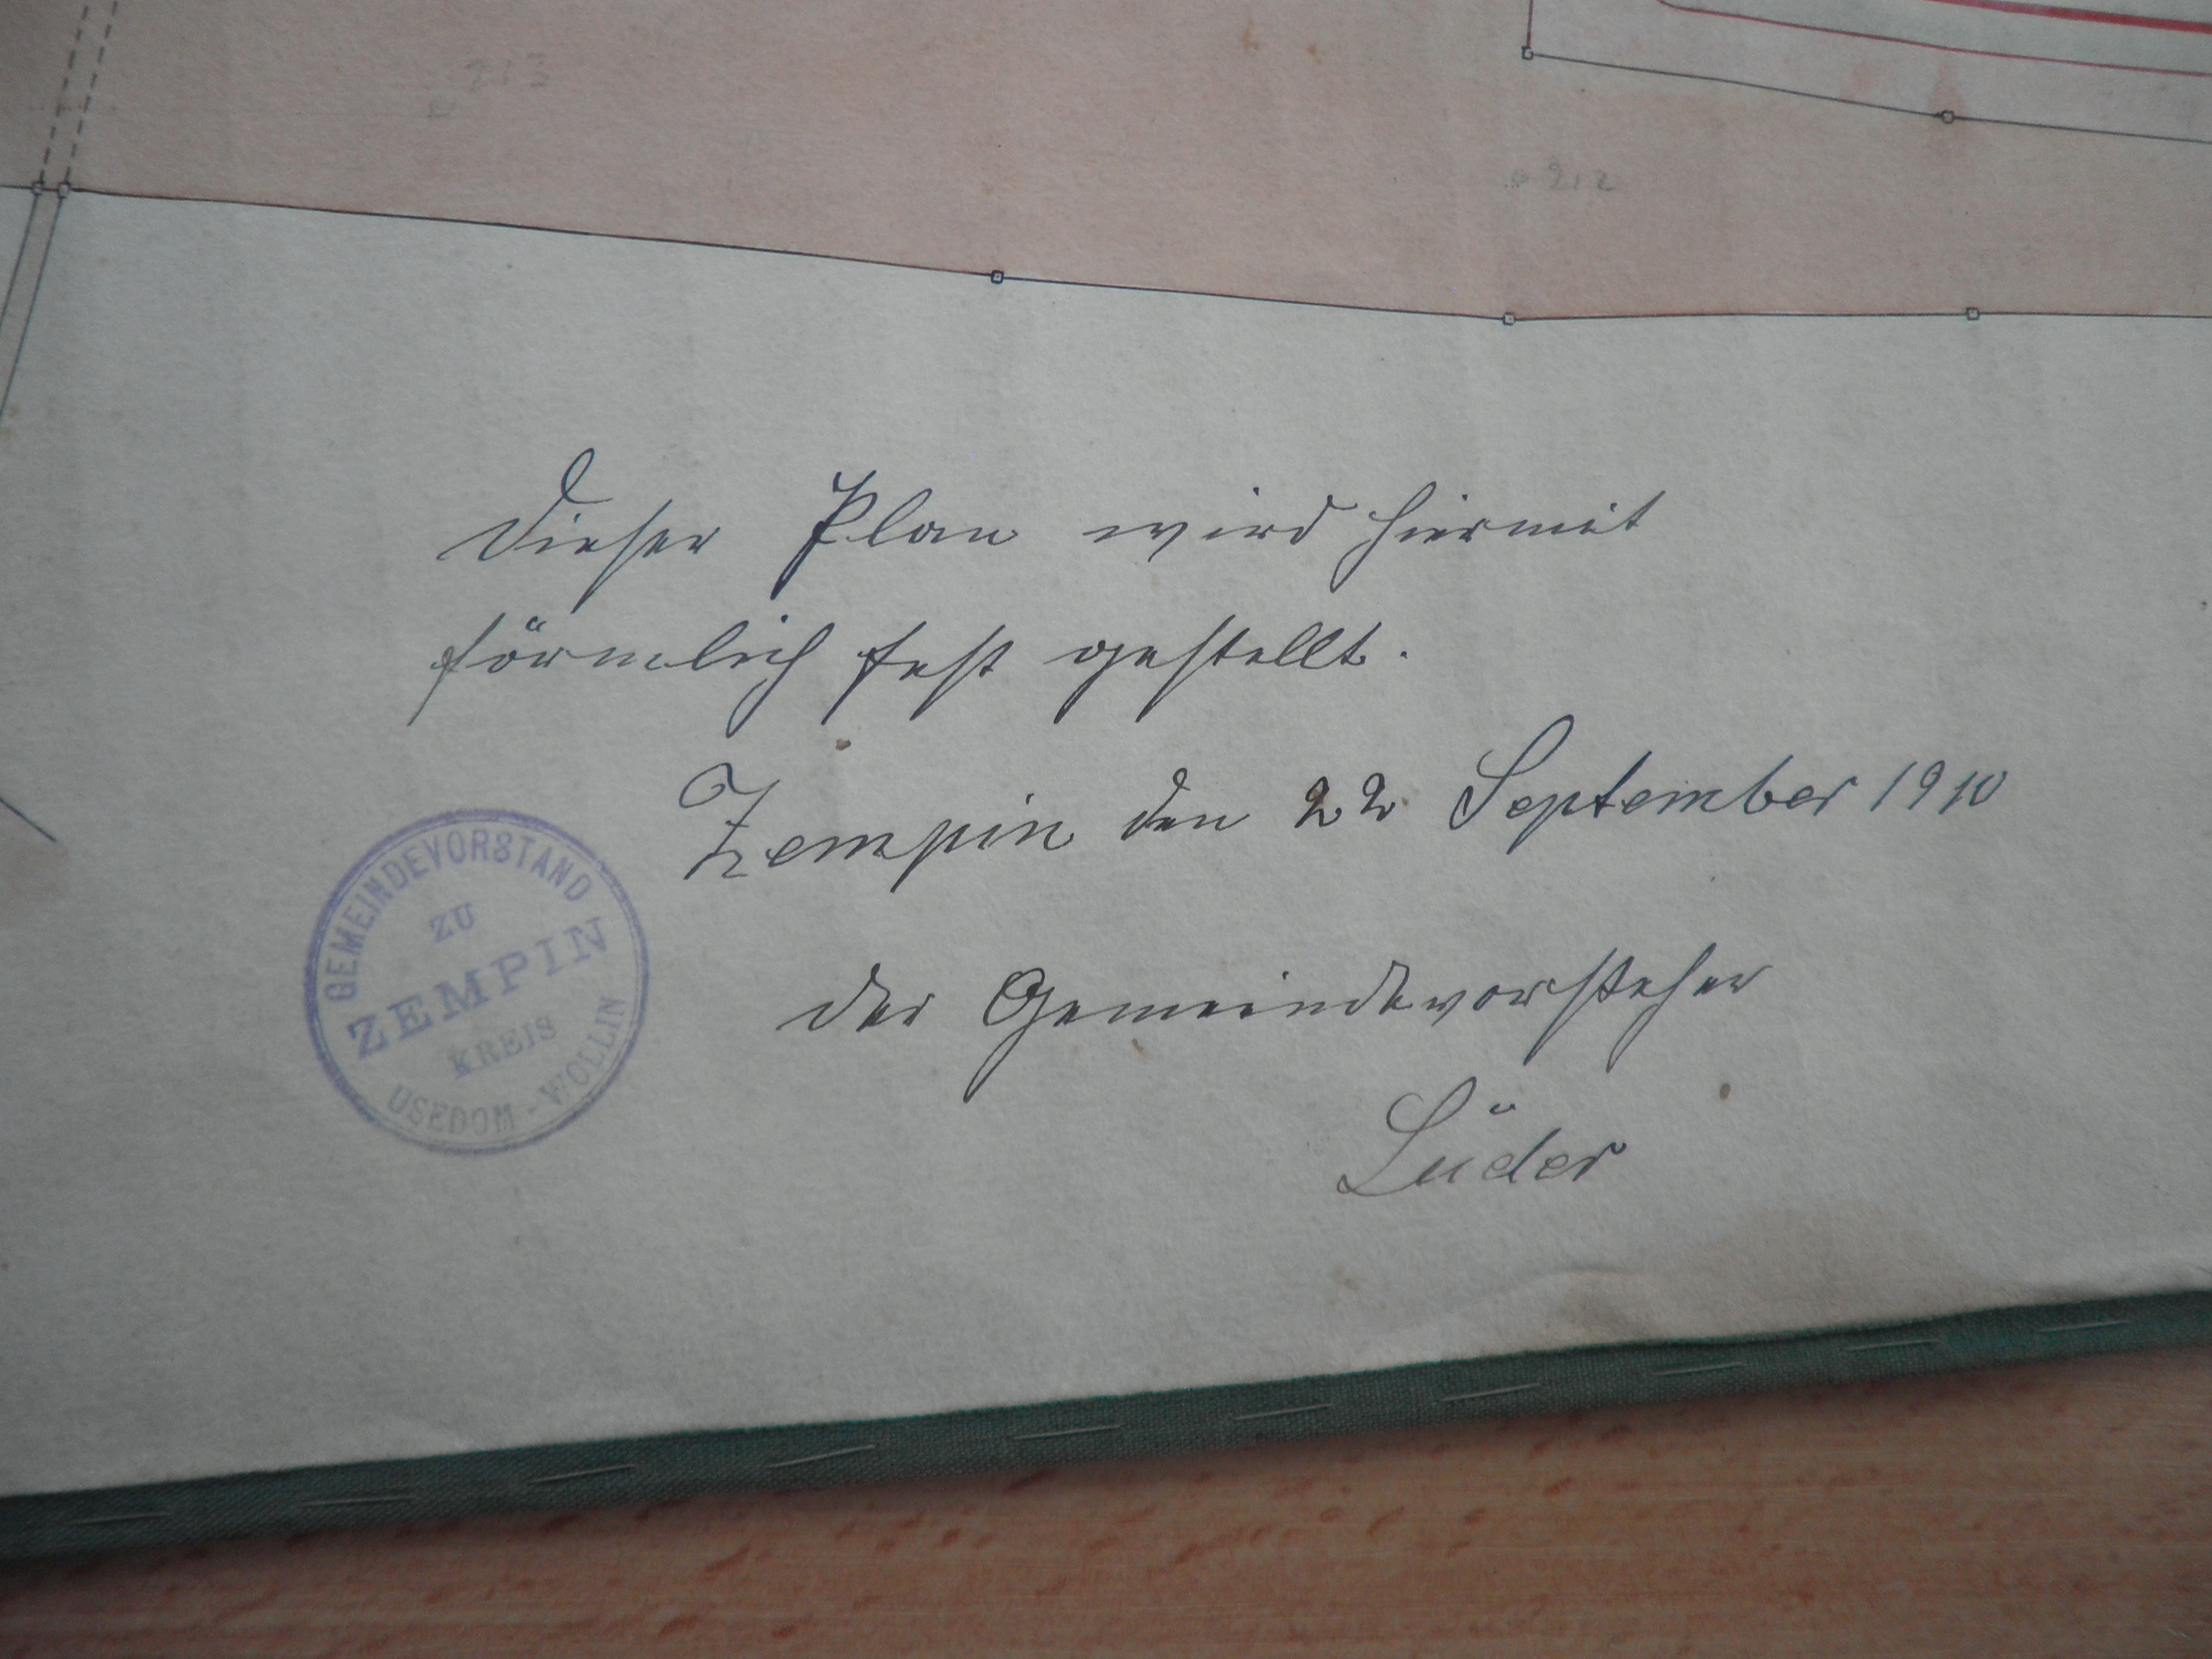 213
212
Dieser Plan wird hiermit
förmlich fest gestellt.
Zempin den 22 September 1910
GEMEINDEVORSTAND
ZU
ZEMPIN
KREIS
USEDOM-WOLLIN
Der Gemeindevorsteher
Lüder